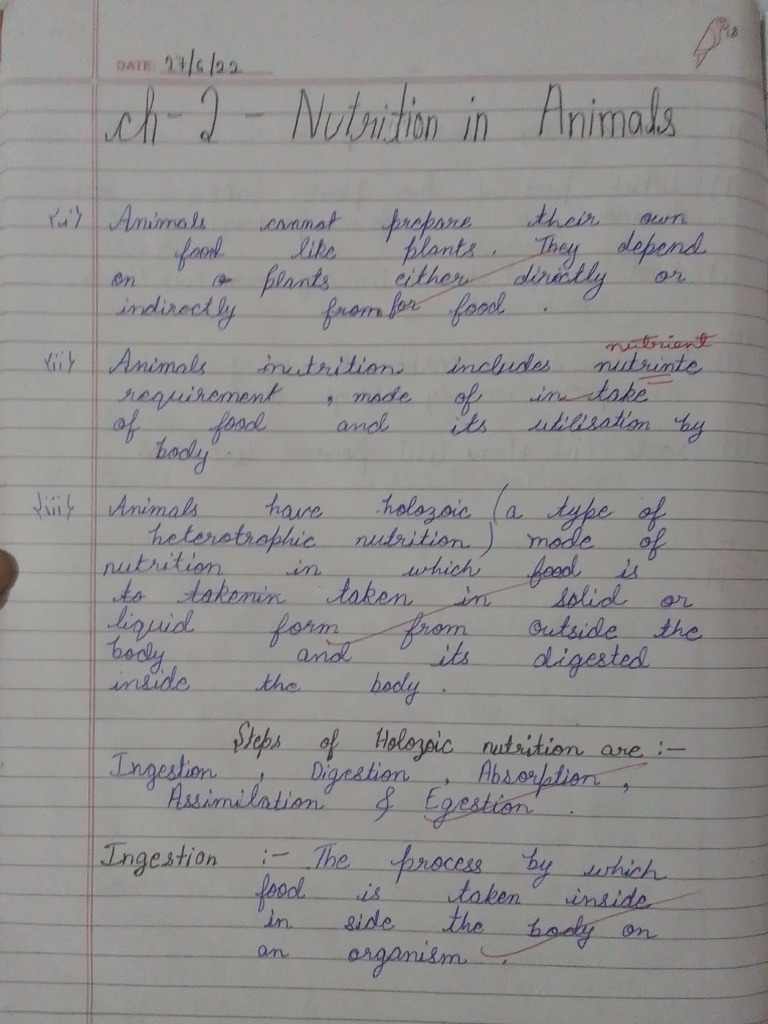 DATE: 27/6/22
ch-2 - Nutrition in Animals
(i) Animals cannot prepare their own
food like plants. They depend
on plants either directly or
indirectly from for food .
nutrient
(ii) Animals nutrition includes nutrinte
requirement , mode of in take
of food and its utilisation by
body
(iii) Animals have holozoic (a type of
heterotrophic nutrition) mode of
nutrition in which food is
to takenin taken in solid or
liquid form from outside the
body and its digested
inside the body .
Steps of Holozoic nutrition are :-
Ingestion , Digestion , Absorption ,
Assimilation & Egestion .
Ingestion :- The process by which
food is taken inside
in side the body on
an organism .